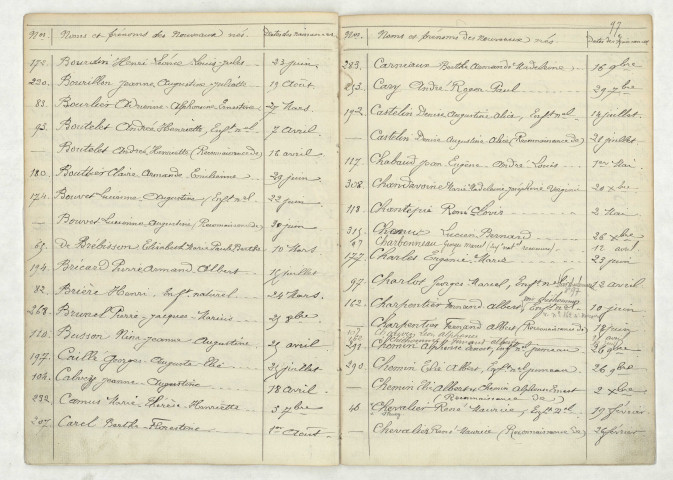 Nos. Noms et prénoms des Nouveaux nés. Dates des naissances
172. Bourdin Henri Louis Jules 23 juin
220. Bourillon Jeanne Augustine Juliette 19 Août
83. Bourlier Adrienne Alphonsine Ernestine 27 Mars.
93. Boutelet Andréa Henriette, Enft. nel. 7 avril
— Boutelet Andréa, Henriette (Reconnaissance de) 16 avril
180. Bouttier Claire Armande Emilienne 29 juin
174. Bouvet Lucienne, Augustine, Enft. nel. 22 juin
— Bouvet Lucienne, Augustine, (Reconnaissance de) 30 juin
65. De Brébisson Elisabeth Marie Paule Berthe 10 Mars
194. Brécard Pierre Armand Albert 15 juillet
82. Brière Henri Enft. naturel 24 Mars.
268. Brunel Pierre Jacques Marius 21 8bre
110. Busson Nina Jeanne Augustine 21 avril
197. Caille Georges Auguste Elie 21 juillet
104. Calvez Jeanne Augustine 18 avril
292. Camus Marie Thérèse Henriette 3 9bre
207. Carel Berthe Florentine 1er Août
97
Nos. Noms et prénoms des nouveaux nés. Dates des Naissances
283. Carneaux Berthe Armande Madeleine 16 9bre
253. Cary André Roger Paul 29 7bre
192. Castelin Denise Augustine Alice, Enft. nel. 14 juillet
— Castelin Denise Augustine Alice (Reconnaissance de) 28 juillet
117. Chabaud Jean Eugène André Louis 1er Mai
308. Chandavoine Marie Madeleine Joséphine Virginie 20 xbre
118. Chantepie René Clovis 2 Mai
315. Chanu Lucien Bernard 26 xbre
97 Charbonneau Georges Marcel 12 avril
177. Charles Eugénie Marie 23 juin
97. Charlos Georges Marcel, Enft. nel 12 avril
162. Charpentier Fernand Albert, 10 juin
Charpentier Fernand Albert (Reconnaissance de) 18 juin
291. Chemin Alphonse Ernest, Enft. nel. jumeau 26 9bre
290. Chemin Elie Albert, Enft. nel. jumeau 26 9bre
— Chemin Elie Albert et Chemin Alphonse Ernest 2 xbre
(Reconnaissance de)
46 Chevalier René Maurice, Enft. nel. 19 février
— Chevalier René Maurice (Reconnaissance de) 26 février